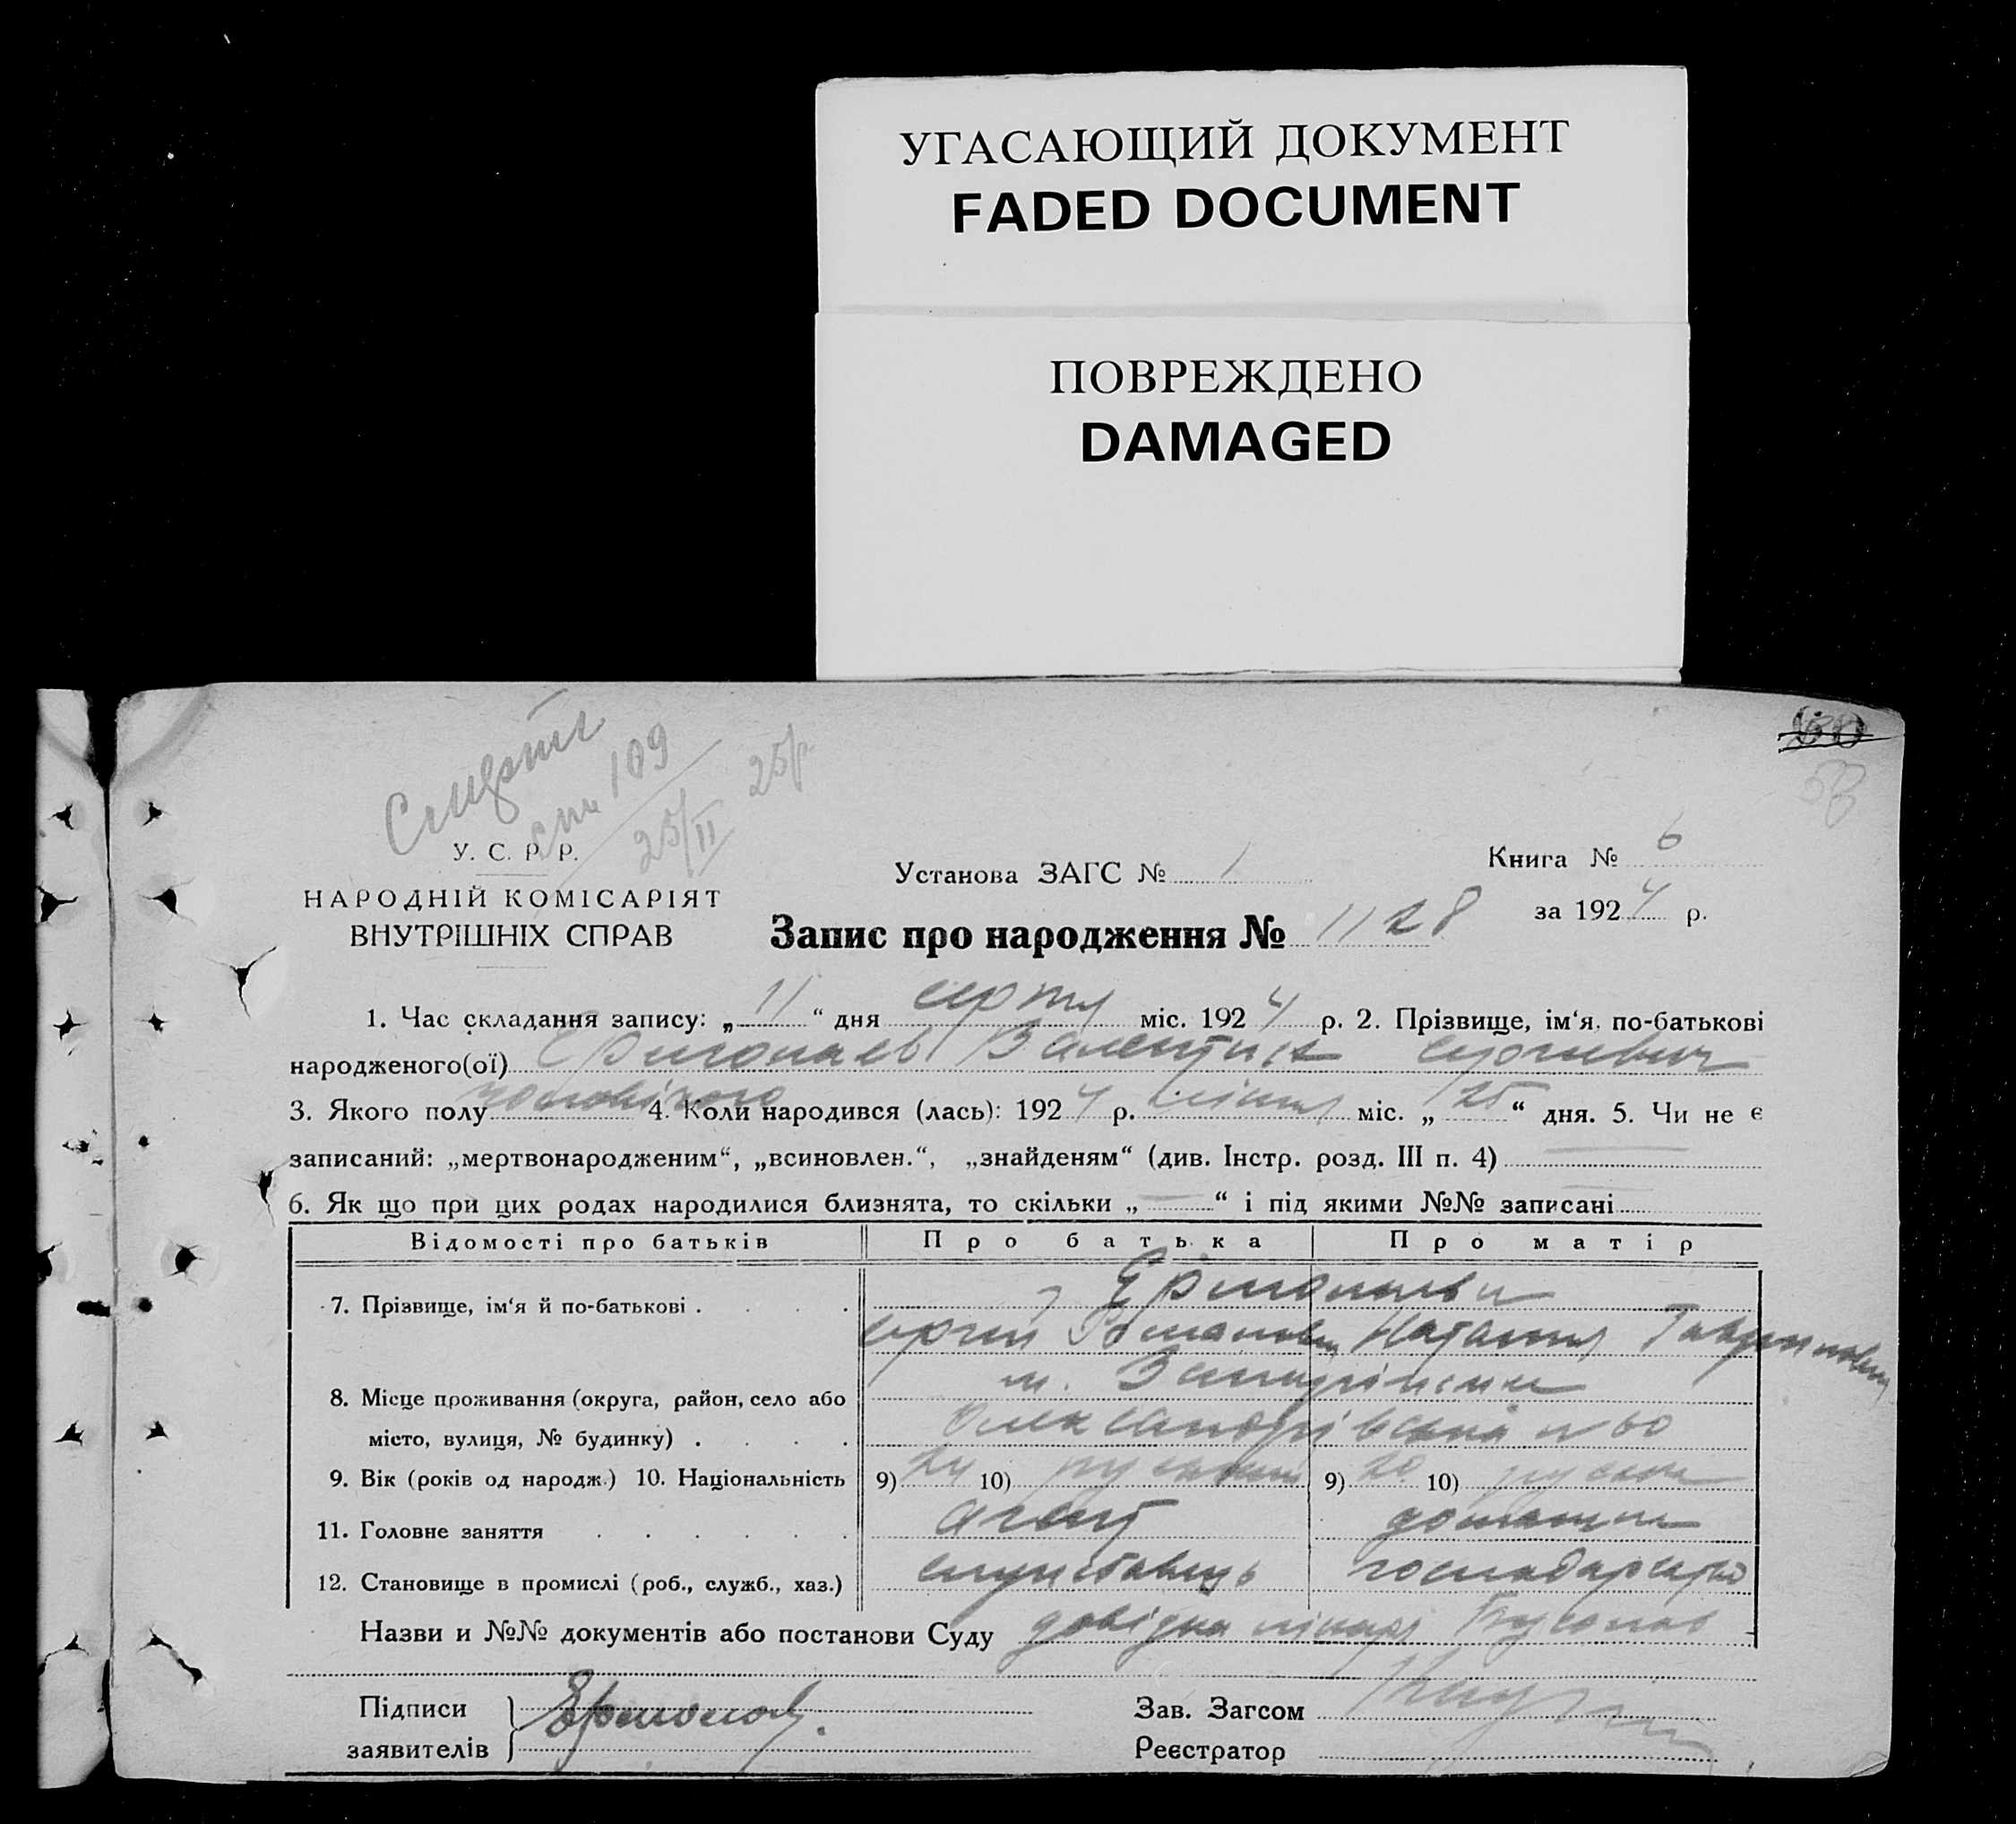 УГАСАЮЩИЙ ДОКУМЕНТ
FADED DOCUMENT
ПОВРЕЖДЕНО
DAMAGED
Смерти
109
25/II 25р
У. С. Р. Р.
НАРОДНІЙ КОМІСАРІЯТ
ВНУТРІШНІХ СПРАВ
Установа ЗАГС № 1
Книга № 6
за 1924 р.
Запис про народження № 1128
1. Час складання запису: „11“ дня серпня міс. 1924 р. 2. Прізвище, ім‘я, по-батькові
народженого(ої) Валентин Сергиевич
3. Якого полу чоловічого 4. Коли народився (лась): 1924 р. липня міс. „25“ дня. 5. Чи не є
записаний: „мертвонародженим“, „всиновлен.“, „знайденям“ (див. Інстр. розд. III п. 4)
6. Як що при цих родах народилися близнята, то скільки „ “ і під якими №№ записані
Відомості про батьків Про батька Про матір
7. Прізвище, ім‘я й по-батькові
Сергий Романович Наталия
8. Місце проживання (округа, район, село або
місто, вулиця, № будинку)
Олександрівська № 60
9. Вік (років од народж.) 10. Національність 9) 24 10) руський 9) 20 10) руська
11. Головне заняття агент домашнє
12. Становище в промислі (роб., служб., хаз.) службовець господарство
Назви и №№ документів або постанови Суду довідка лікаря
Підписи
заявителів
Зав. Загсом
Реєстратор